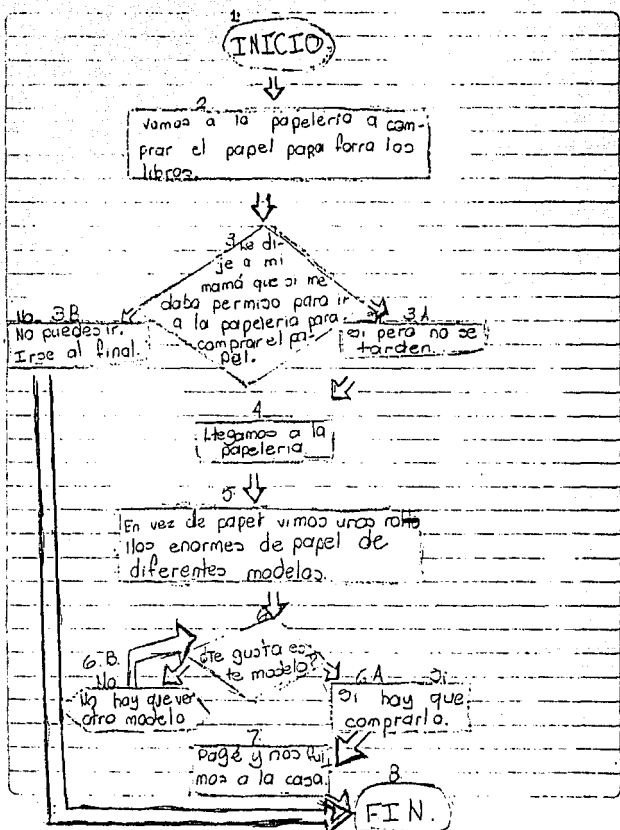 1.
INICIO
2
vamos a la papelería a com-
prar el papel papa forra los
libros.
3 Le di-
je a mi
mamá que si me
daba permiso para ir
a la papelería para
comprar el pa-
pel.
No. 3.B
No puedes ir.
Irse al final.
3A
si pero no se
tarden.
4
Llegamos a la
papelería
5.
En vez de papel vimos unos
llos enormes de papel de
diferentes modelos.
6
¿Te gusta es-
te modelo?
6.B.
No
No hay que ver
otro modelo
6.A Si
Si hay que
comprarlo.
7.
Pagé y nos fui
mos a la casa.
8
FIN.